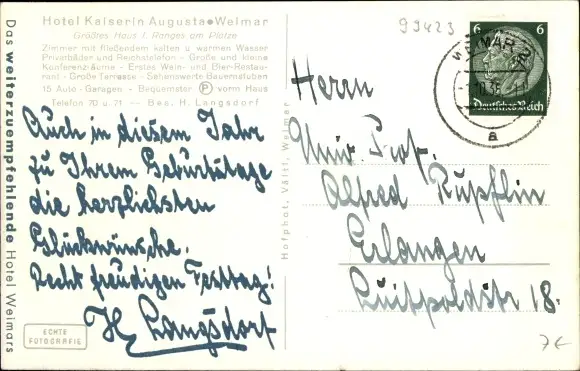 Hotel Kaiserin Augusta • Weimar
Größtes Haus I. Ranges am Platze
Zimmer mit fließendem kalten u warmen Wasser
Privatbäder und Reichstelefon - Große und kleine
Konferenz-Räume - Erstes Wein- und Bier-Restau-
rant - Große Terrasse - Sehenswerte Bauernstuben
15 Auto-Garagen - Ⓟ vorm Haus
Telefon 70 u. 71 — Bes. H. Langsdorf
Auch in diesem Jahr
zu Ihrem Geburtstage
die herzlichsten
Glückwünsche.
Recht freudigen Festtag!
H Langsdorf
Das weiterzuempfehlende Hotel Weimars
ECHTE
FOTOGRAFIE
Hofphot. Vältl, Weimar
99423
6 6
Deutsches Reich
WEIMAR
a
Herrn
Univ. Prof.
Alfred Rupflin
Erlangen
Luitpoldstr 18.
7€